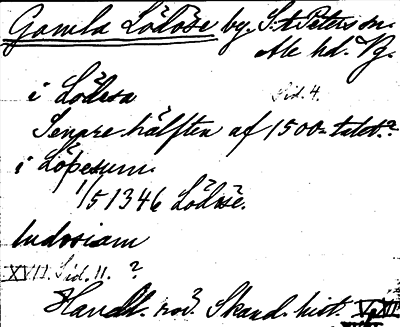 Gamla Lödöse by. S:t Peters sn.
Ale hd. Vg.
i Lödesa Sid. 4.
Senare hälften af 1500-talet?
i Löpesum
1/5 1346 Lödöse.
ludosiam
XVII. Sid. 11. ?
Handl. rör. Skand. hist.